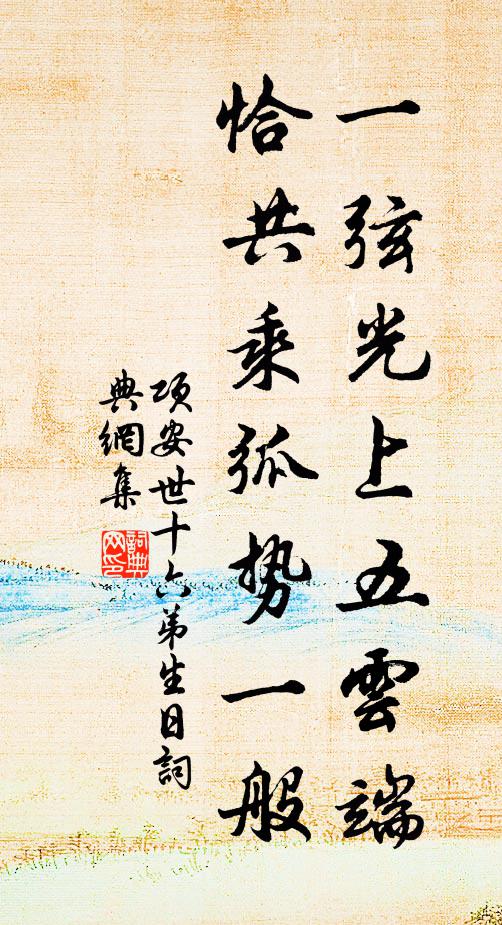 一弦光上五雲端
恰共乘弧势一般
项安世十六弟生日詞
典網集
詞典
网印